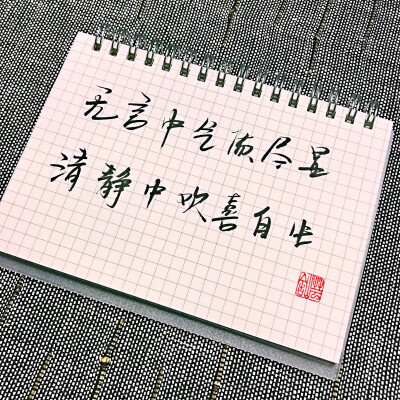 无言中气质尽显
清静中欢喜自生